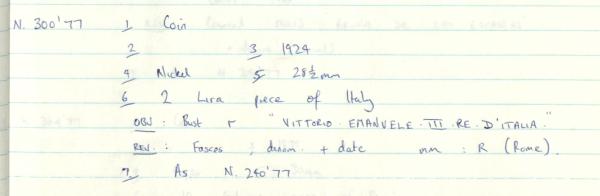 N. 300'77 1 Coin
2 3 1924
4 Nickel 5 28½mm
6 2 Lira piece of Italy
OBV : Bust r "VITTORIO · EMANVELE · III · RE · D'ITALIA ·"
REV. : Fasces ; denom. + date mm : R (Rome).
7 As N. 240'77